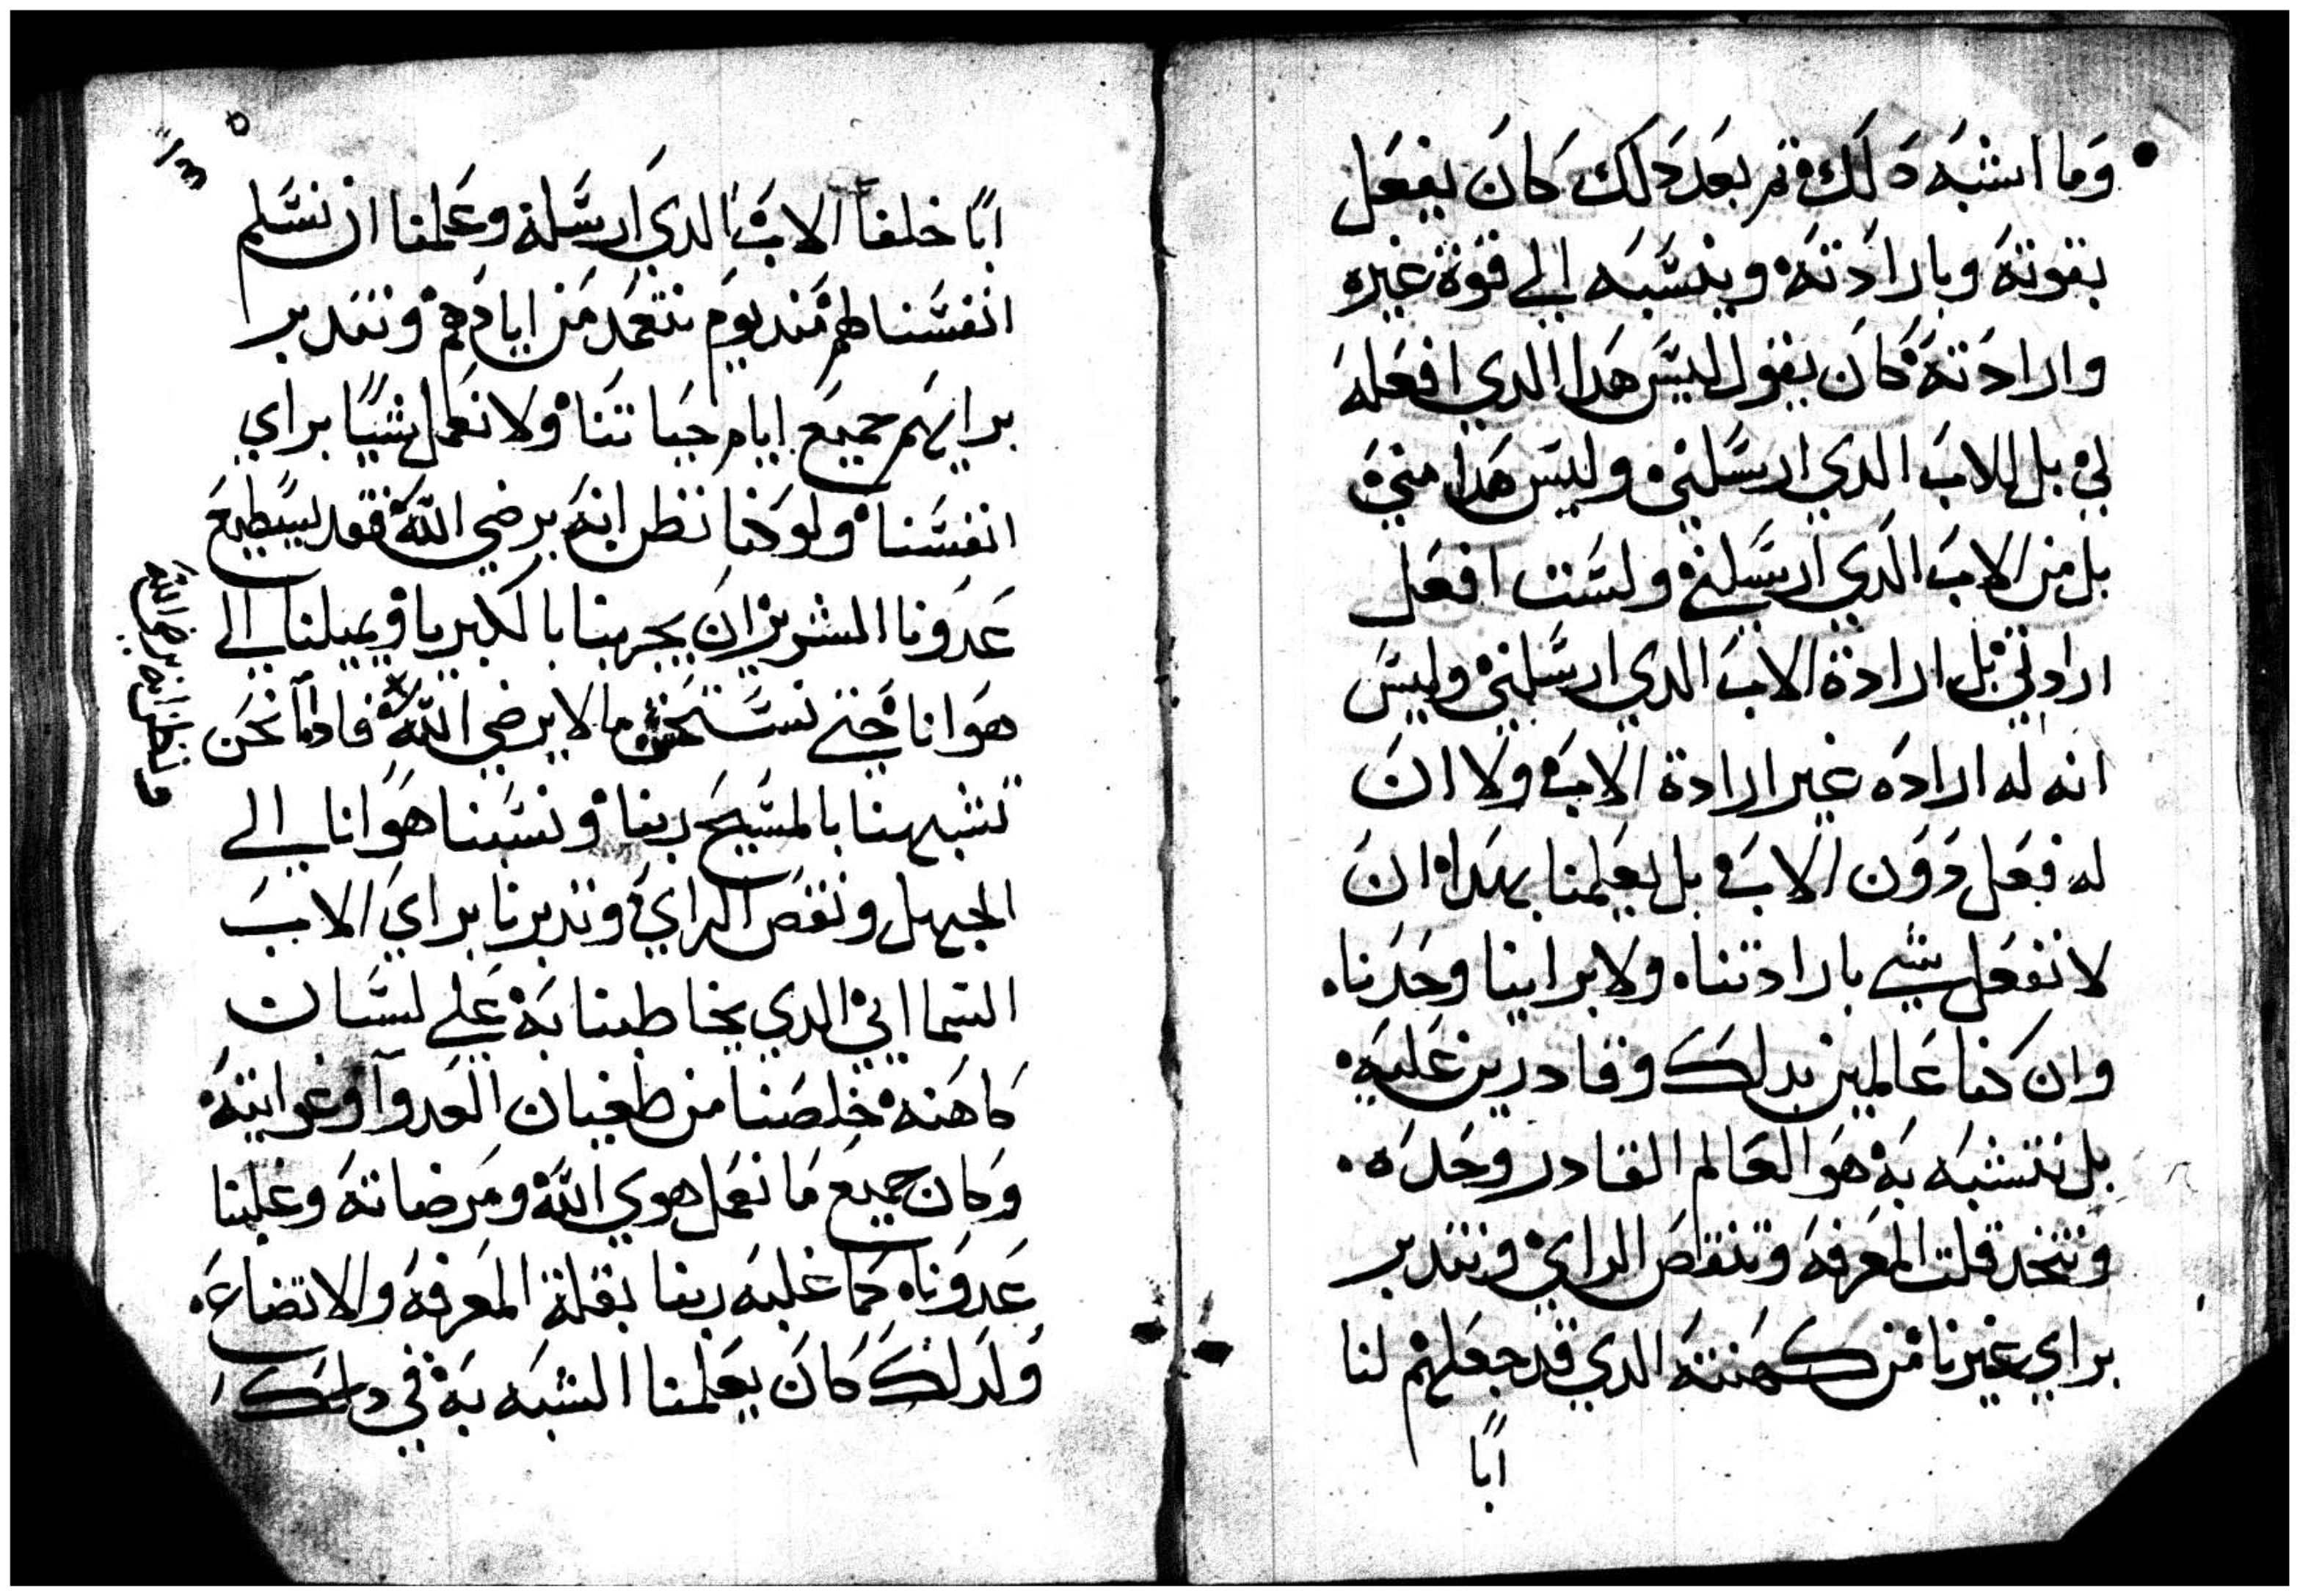 وما اشبه دلك ثم بعد دلك كان يفعل
بقوته وبارادته وينسبه الي قوة غيره
وارادته كان يقول ليس هدا الدي افعله
لي بل للاب الدي ارسلني وليس هدا مني
بل من الاب الدي ارسلني ولست افعل
ارادتي بل ارادة الاب الدي ارسلني وليس
انه له اراده غير ارادة الاب ولا ان
له فعل دون الاب بل يعلمنا بهدا ان
لا نفعل شي بارادتنا ولا براينا وحدنا
وان كنا عالمين بدلك وقادرين عليه
بل نتشبه به هو العالم القادر وحده
ونتخد قلت المعرفه وتنقاص الراي ونتدبر
براي غيرنا من كهنته الدي قد جعلهم لنا
ابًا
ابًا خلفا الاب الدي ارسله وعلمنا ان نسلم
انفسنا لهم مند يوم نتعمد من ايادهم ونتدبر
برايهم جميع ايام حياتنا ولا نعمل شيًا براي
انفسنا ولو كنا نظن انه يرضي الله فقد يسطيع
عدونا الشرير ان يجربنا بالكبريا ويميلنا الي
هوانا حتي نستحسن ما لا يرضي الله فادا نحن
تشبهنا بالمسيح ربنا ونسبنا هوانا الي
الجهل ونقص الراي وتدبرنا براي الاب
السمااني الدي يخاطبنا به علي لسان
كاهنه خلصنا من طغيان العدو وغوايته
وكان جميع ما نعمل هوي الله ومرضاته وغلبنا
عدونا كما غلبه ربنا بقلة المعرفه والاتضاع
ولدلك كان يعلمنا الشبه به في دلك
ونظن انه يرضي الله